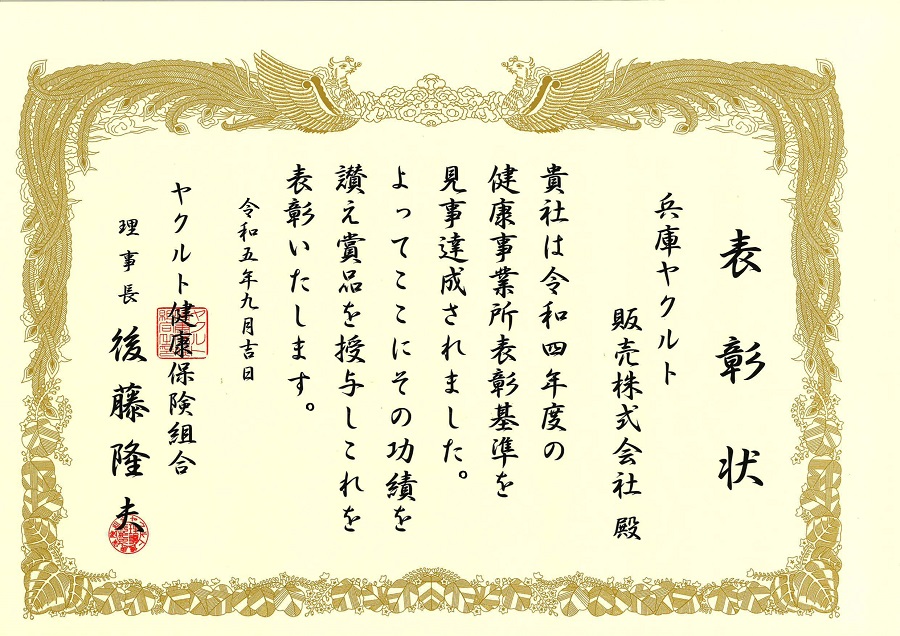 表彰状
兵庫ヤクルト
販売株式会社 殿
貴社は令和四年度の
健康事業所表彰基準を
見事達成されました。
よってここにその功績を
讃え賞品を授与しこれを
表彰いたします。
令和五年九月吉日
ヤクルト健康保険組合
理事長 後藤隆夫